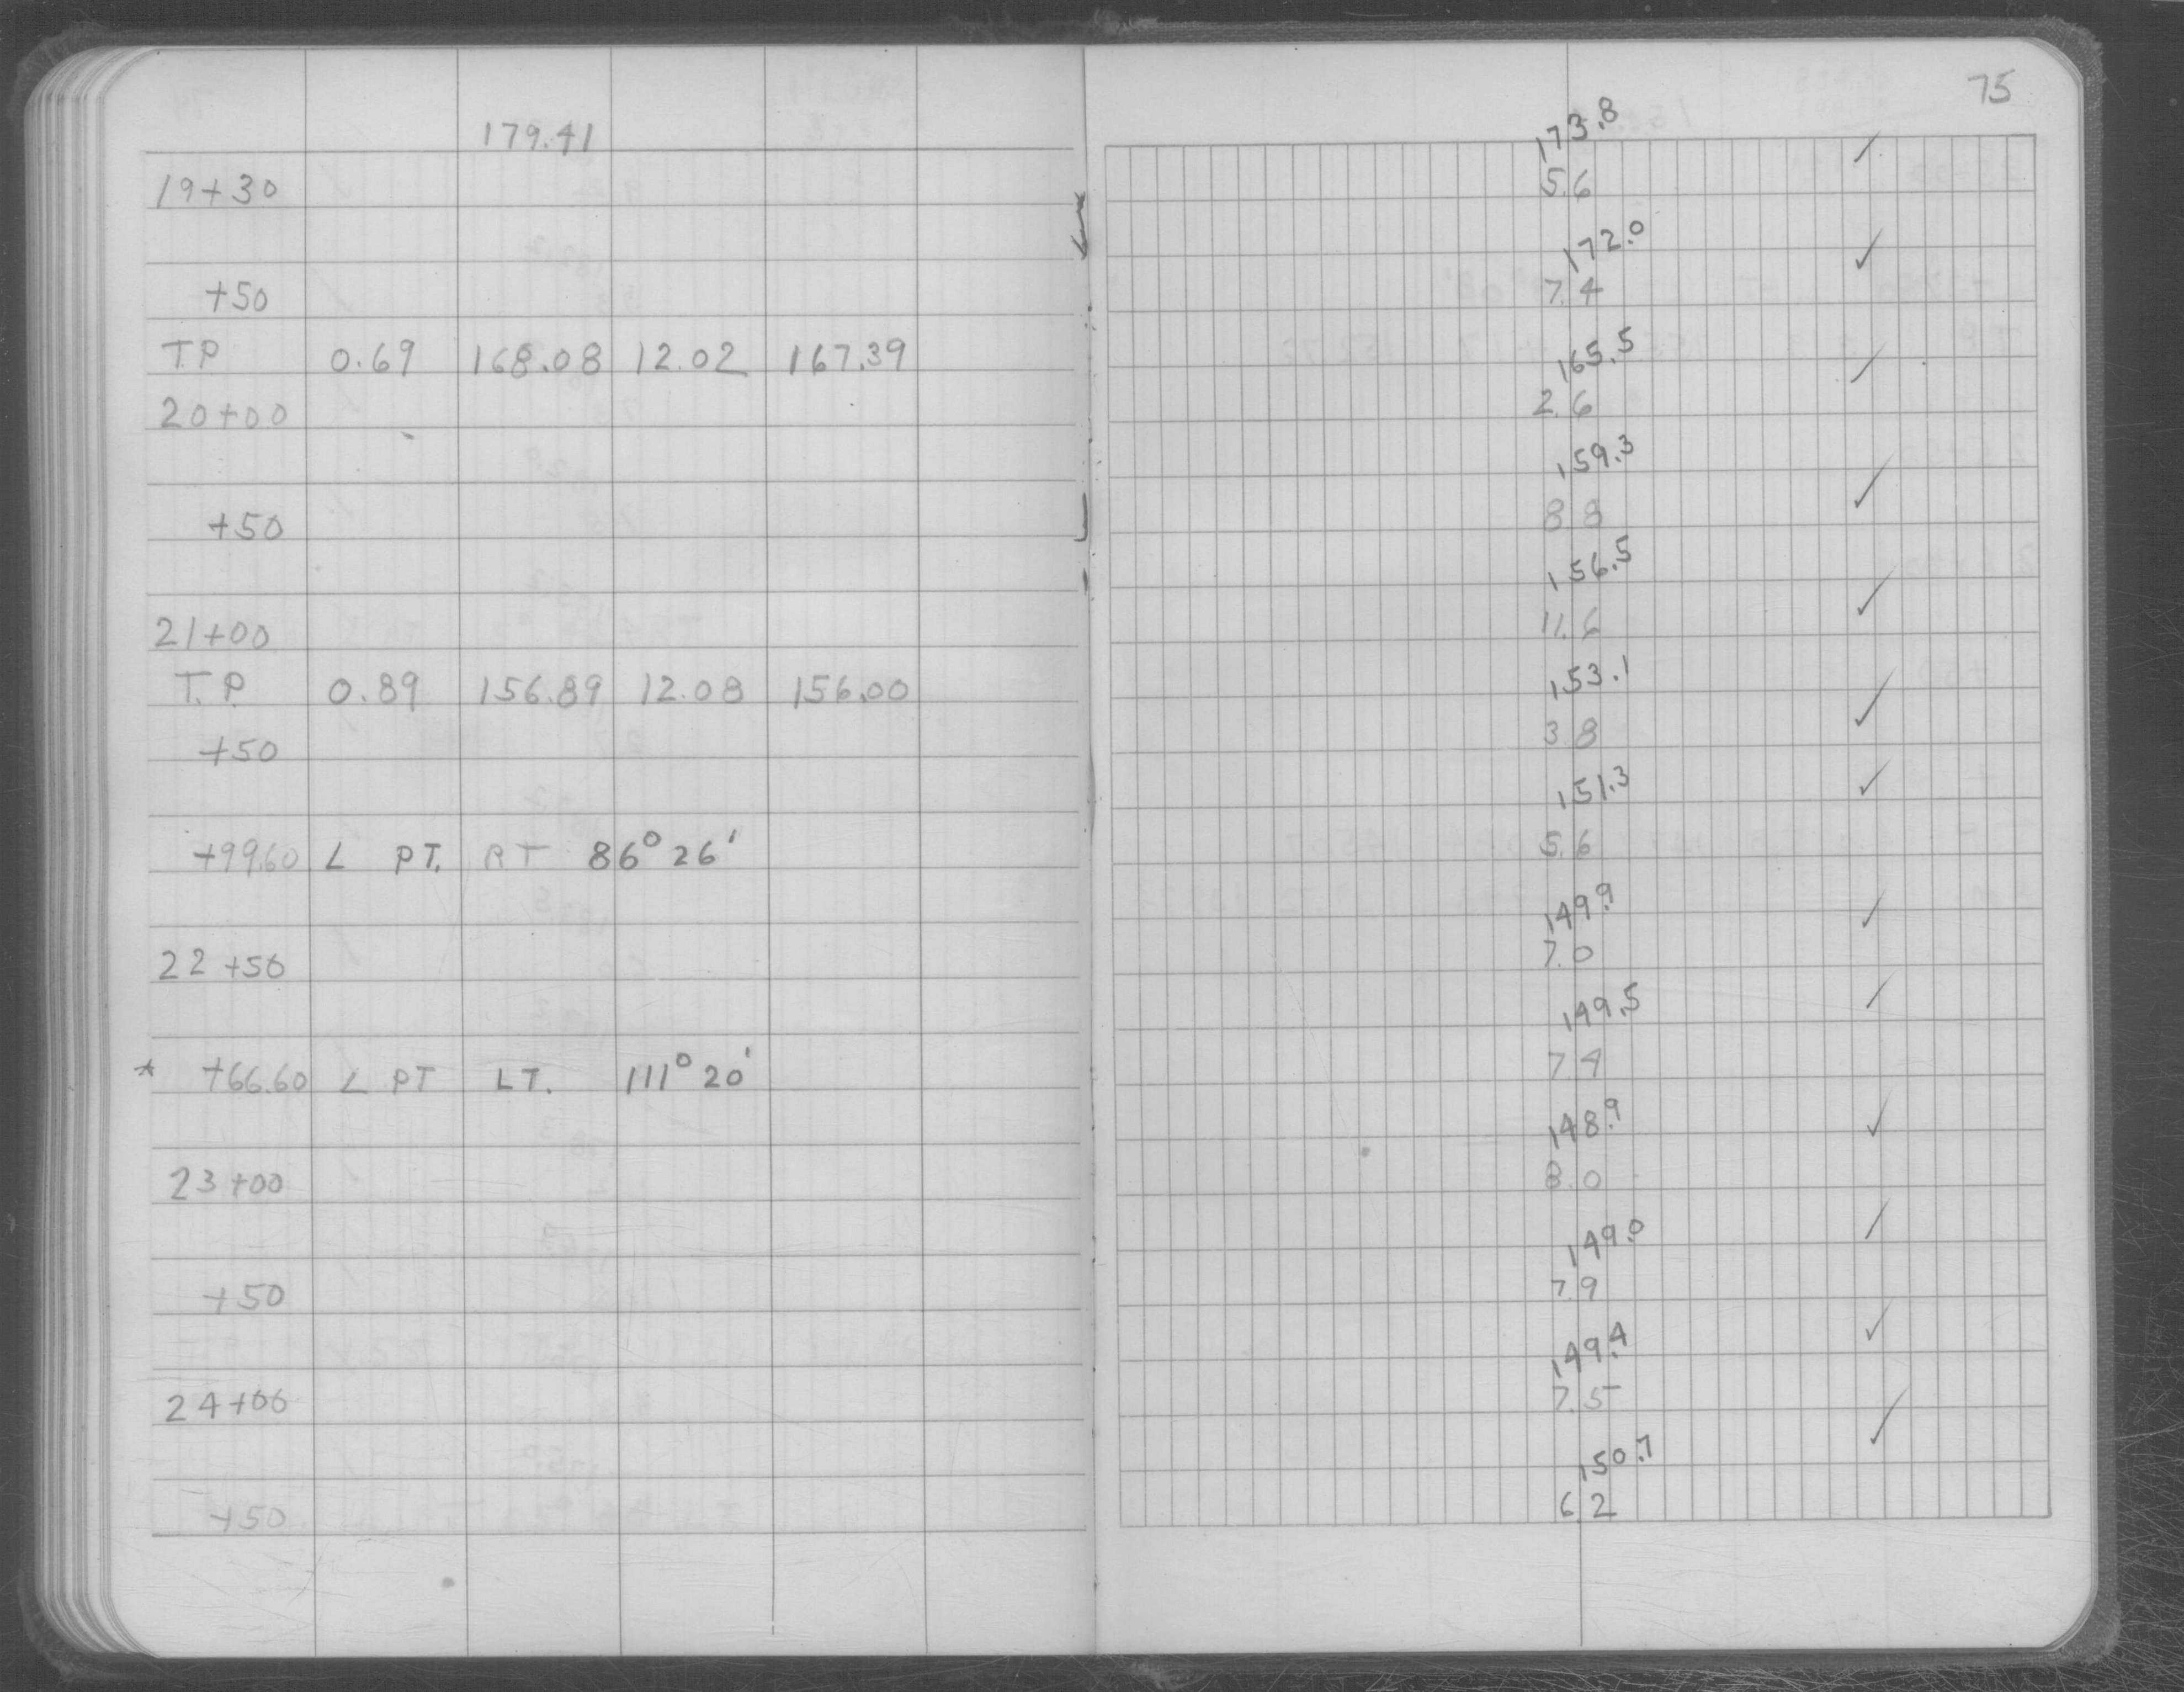 75
179.41
173.8
19+30 5.6
172.0
+50 7.4
T.P 0.69 168.08 12.02 167.39
165.5
20+00 2.6
159.3
+50 8.8
156.5
21+00 11.6
T.P. 0.89 156.89 12.08 156.00
153.1
+50 3.8
151.3
+99.60 ∠ PT. RT 86° 26' 5.6
149.9
22+50 7.0
149.5
* +66.60 ∠ PT LT. 111° 20' 7.4
148.9
23+00 8.0
149.0
+50 7.9
149.4
24+00 7.5
150.7
+50 6.2